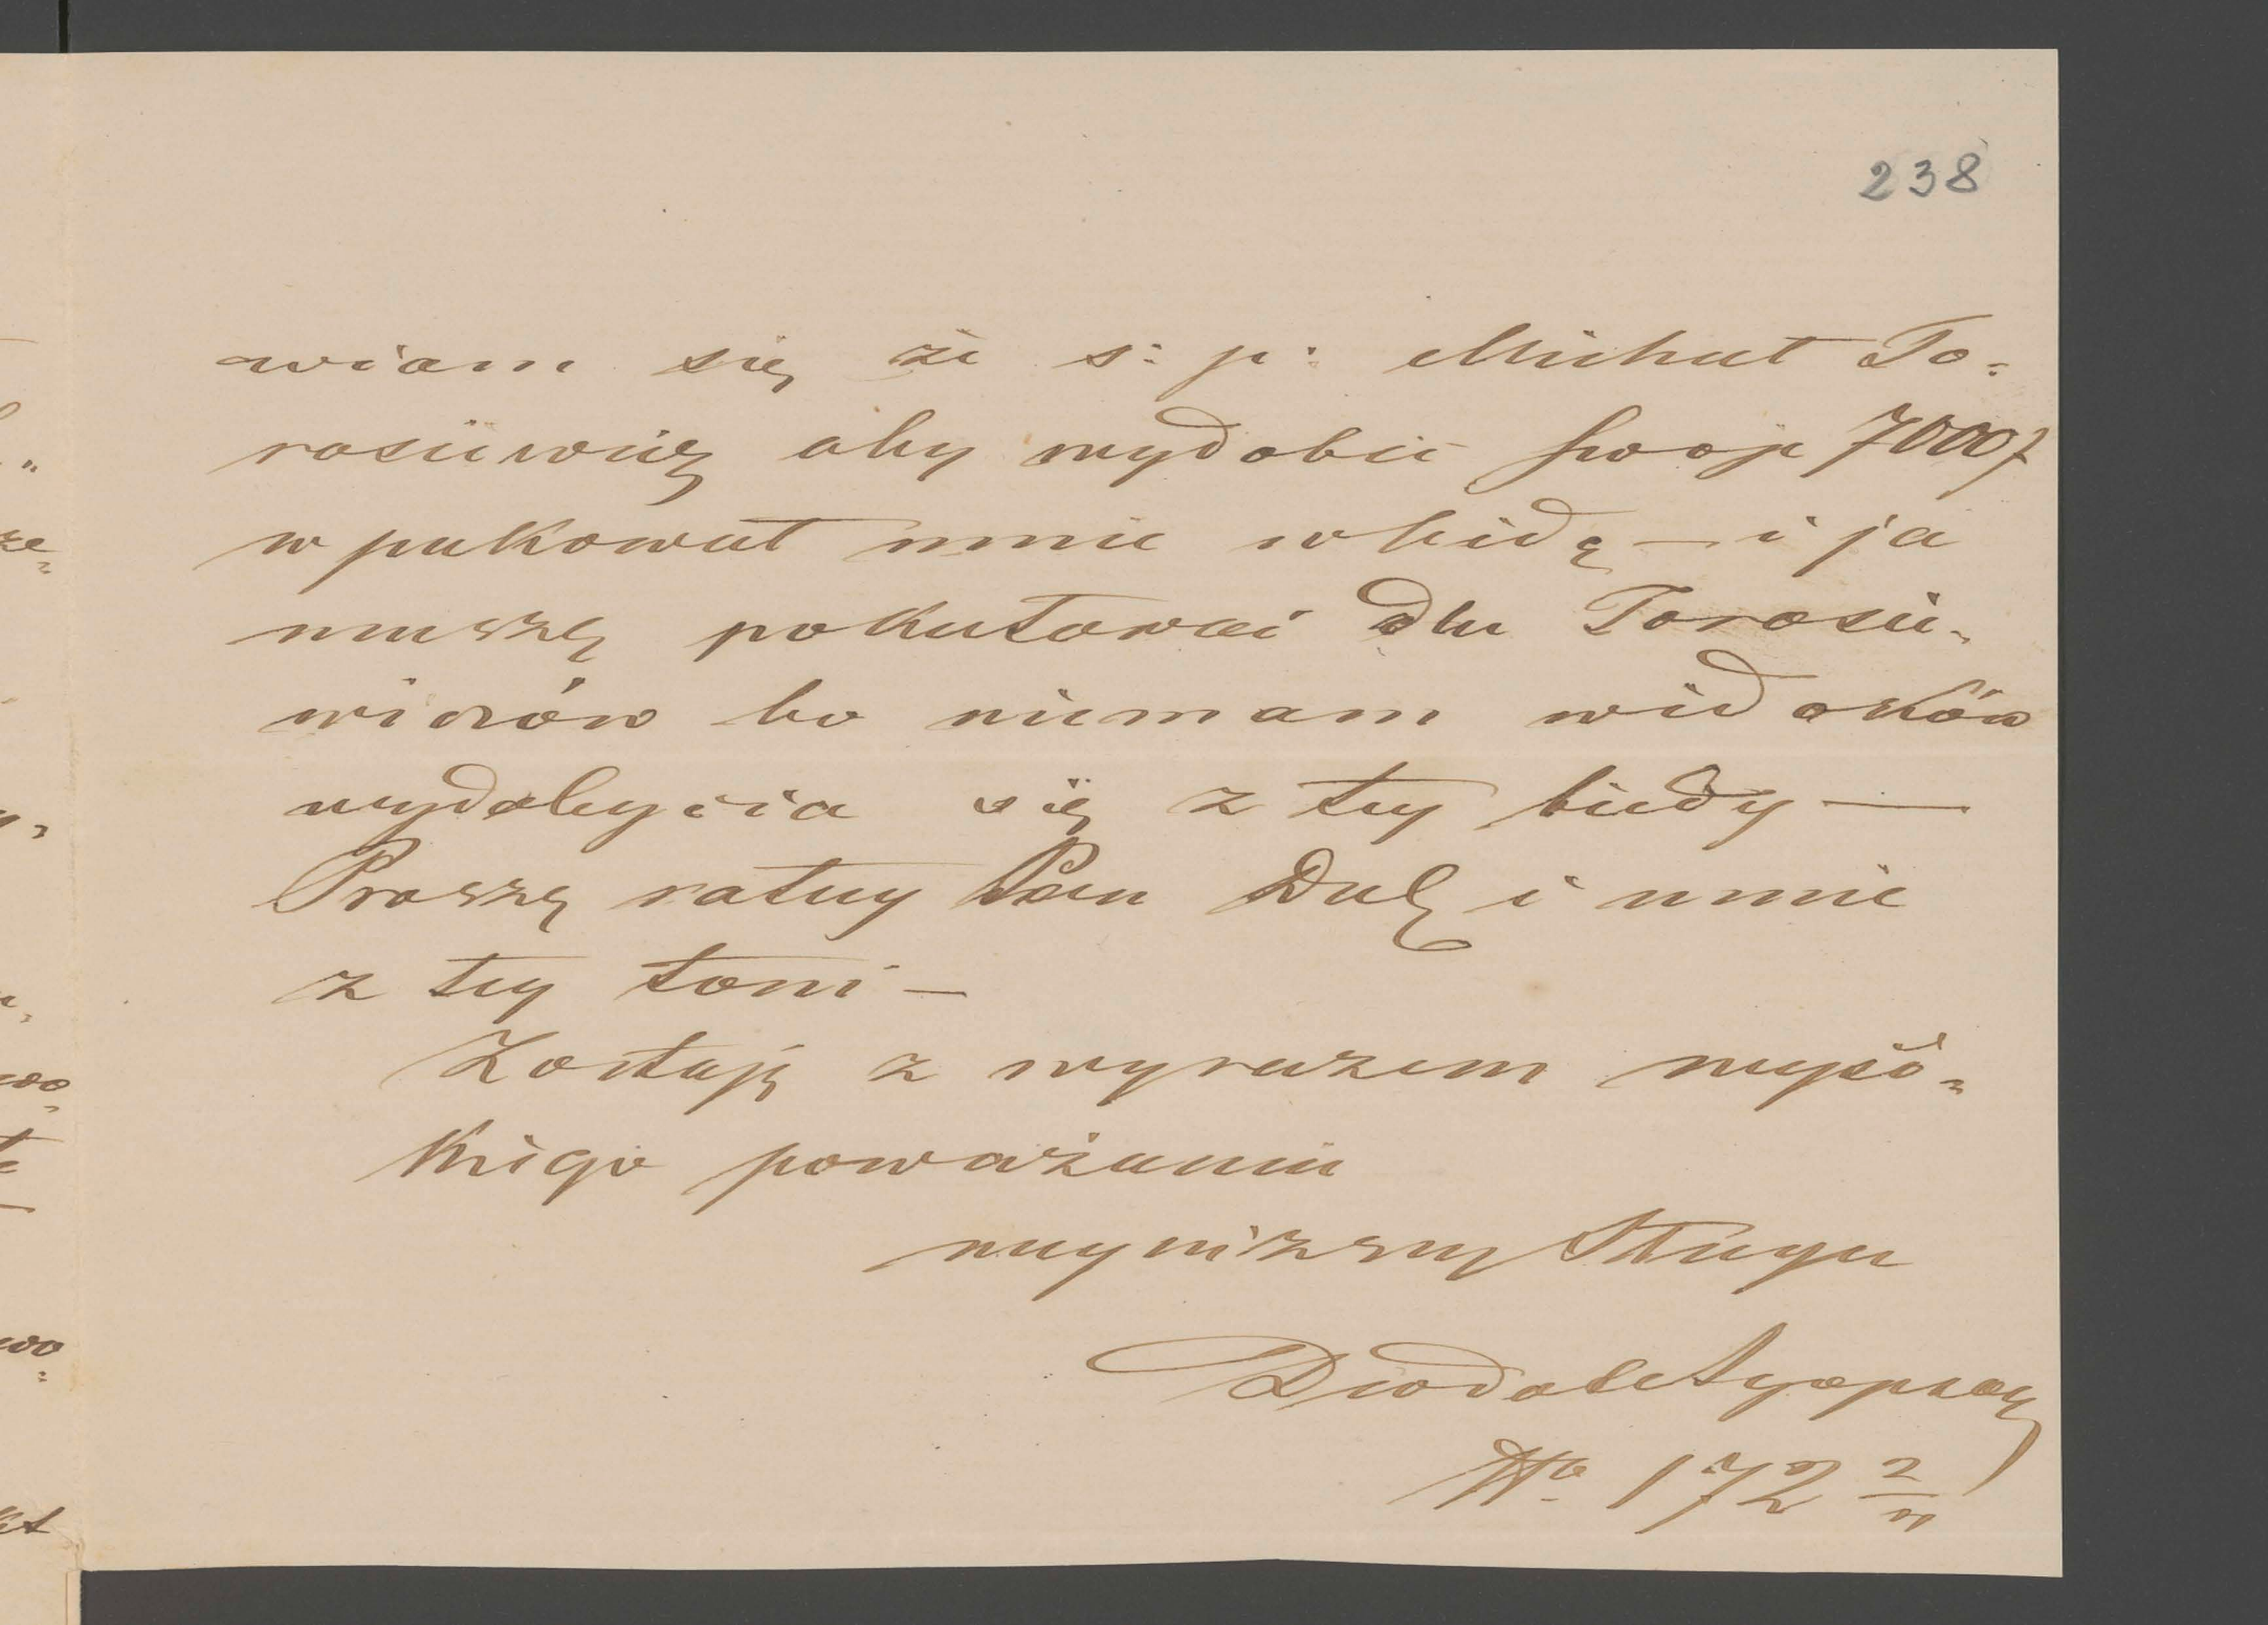 238
wiam się że ś: p: Michał To=
rosiewicz aby wydobić swoje 7000 f
wpakował mnie w biédę — i ja
muszę pokutować dla Torosie=
wiczów bo niemam widoków
wydobycia się z tey biedy —
Proszę ratuy Pan Dulę i mnie
z tey toni —
Zostaję z wyrazem wyso=
kiego poważania
nayniższy Sługa
Deodat
No 172 2/4